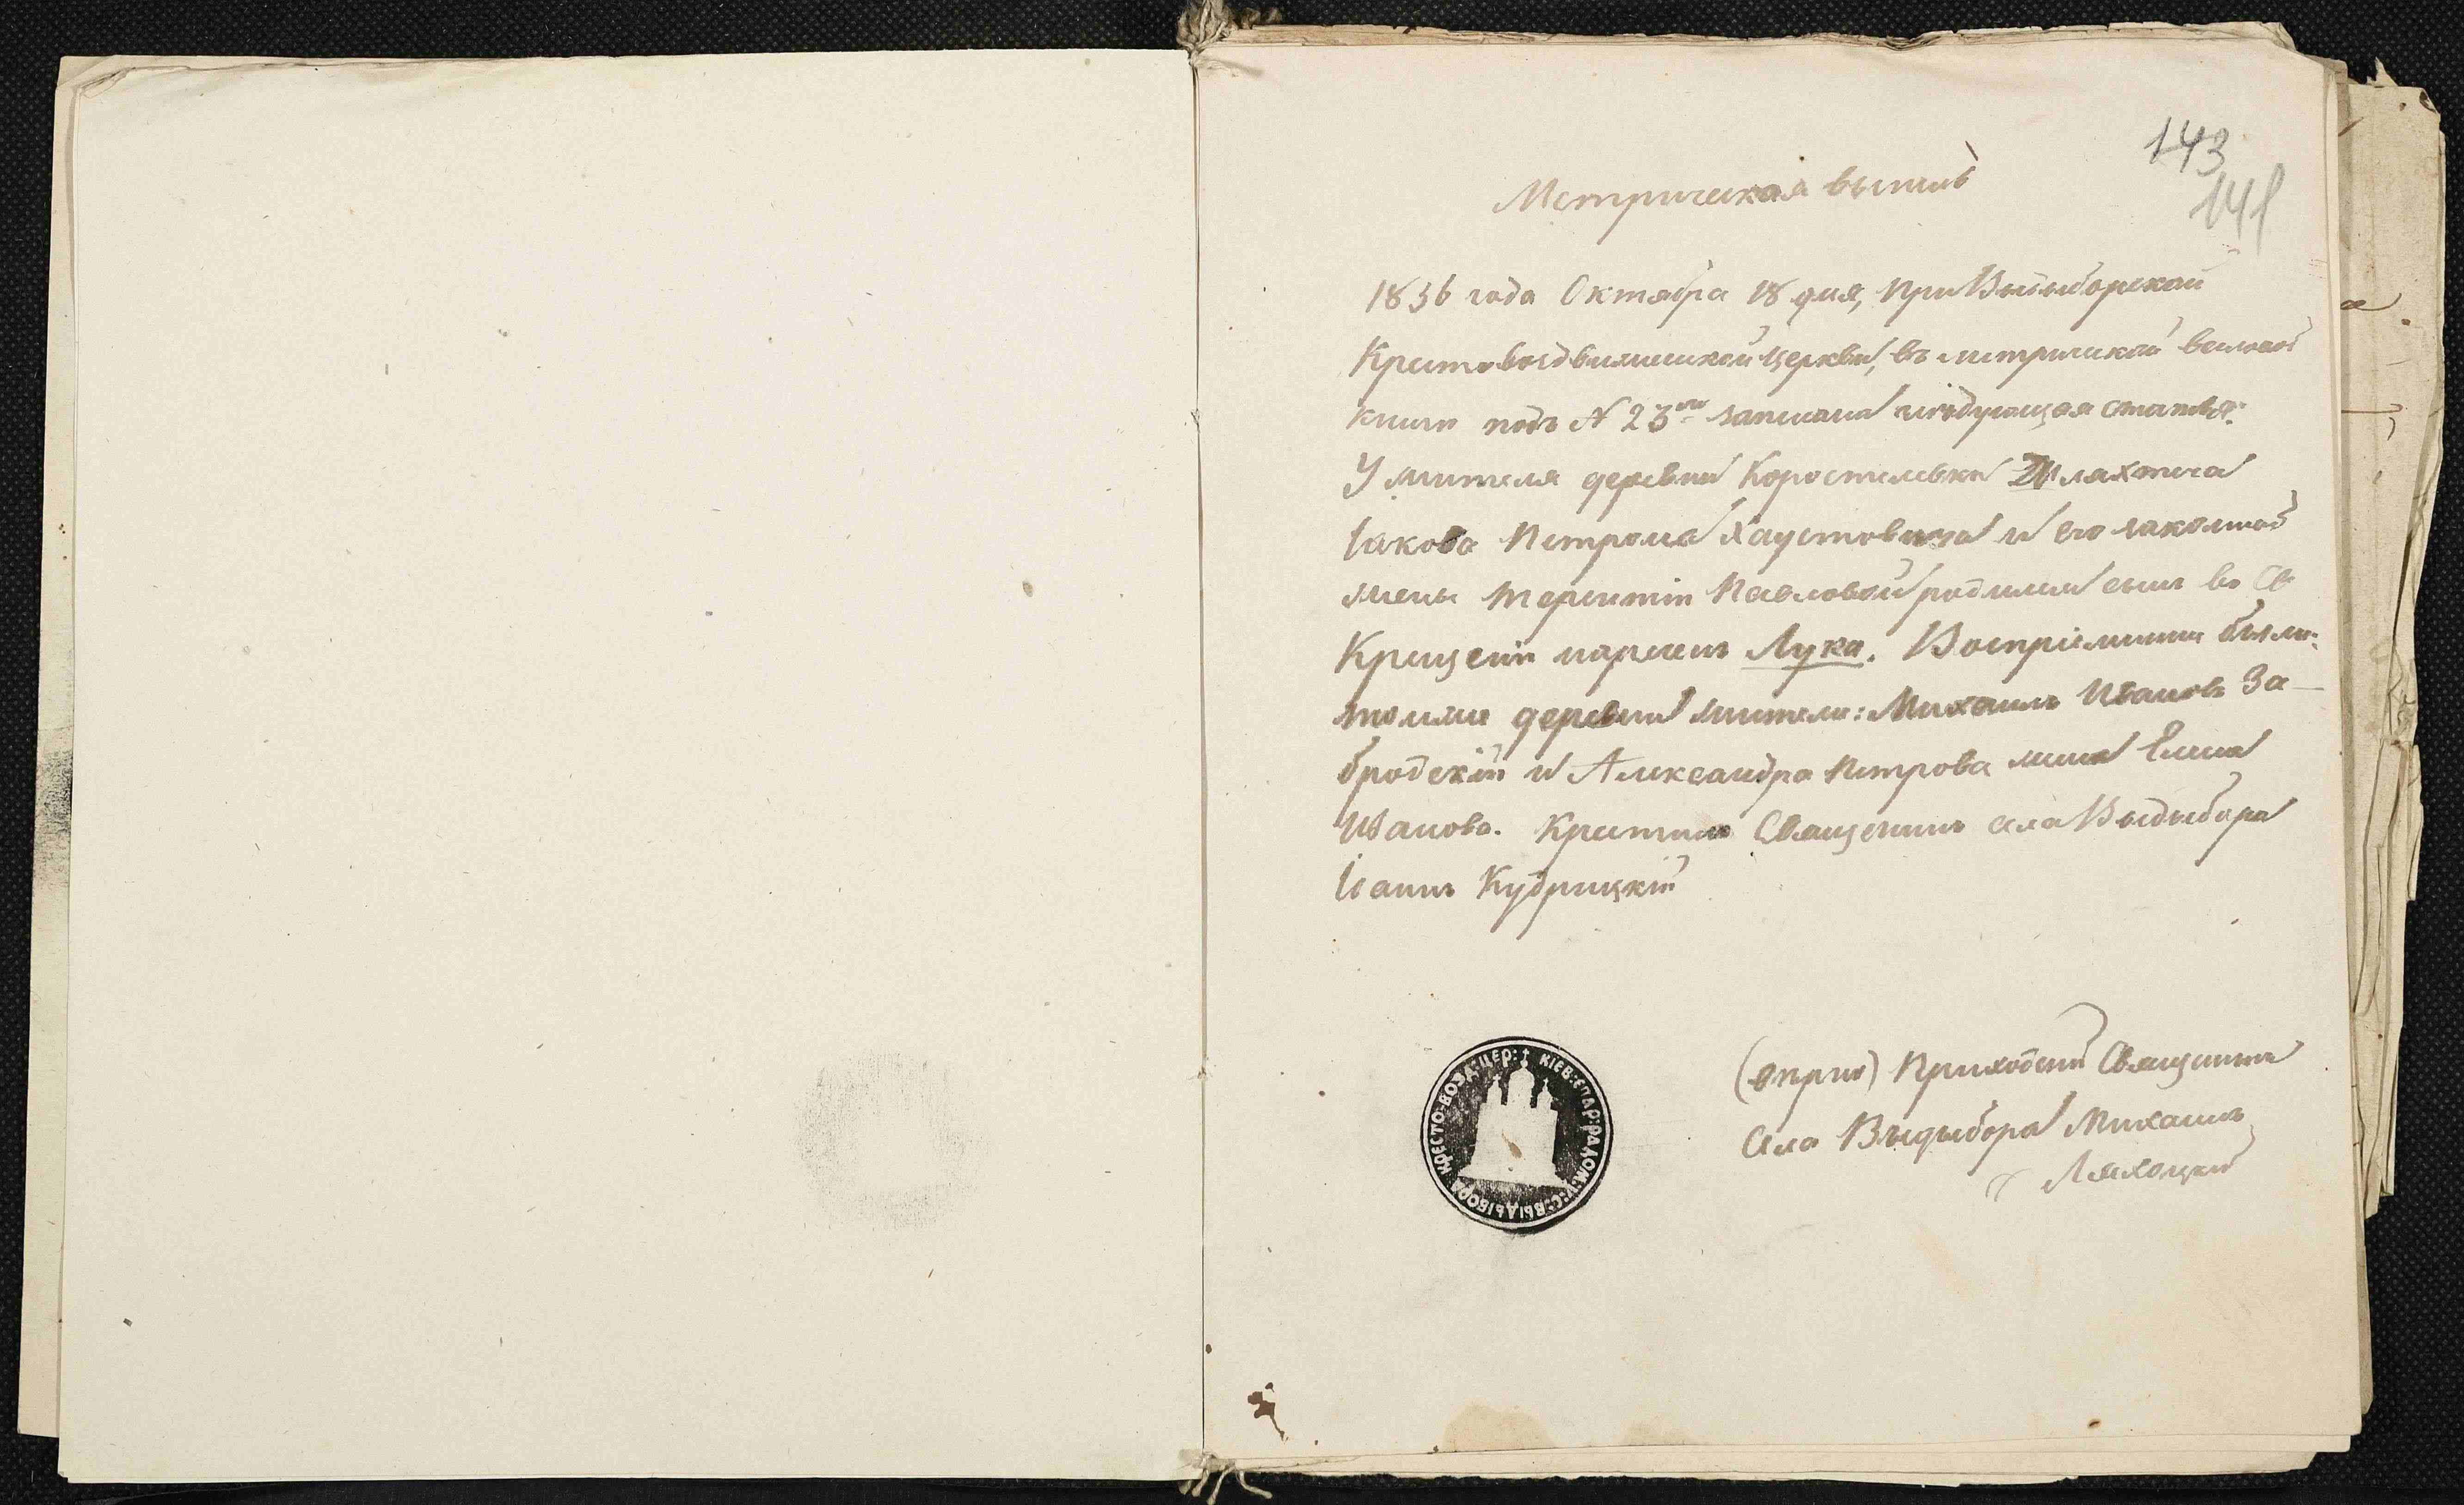 143
141
Метрическая выпись
1836 года Октября 18 дня, при Выдыборской
Крестовоздвиженской церкви, въ метрической
книги подъ № 23мъ записана слѣдующая статья:
У жителя деревни Коростылевки Шляхтича
Іакова Петрова Хаустовича и его законной
жены Терентіи Павловой родился сынъ во Св
Крещеніи нареченъ Лука. Воспріемники были:
тойже деревни жители: Михаилъ Ивановъ За-
бродскій и Александра Петрова жена Елена
Иванова. Крестилъ Священникъ села Выдыбора
Іоаннъ Кудрицкій
Приходскій Священникъ
Села Выдыбора Михаилъ
Ляхоцкій
КІЕВ: ЕПАР: РАДОМ: У: С: ВЫДЫБОРА КРЕСТО-ВОЗД: ЦЕР: